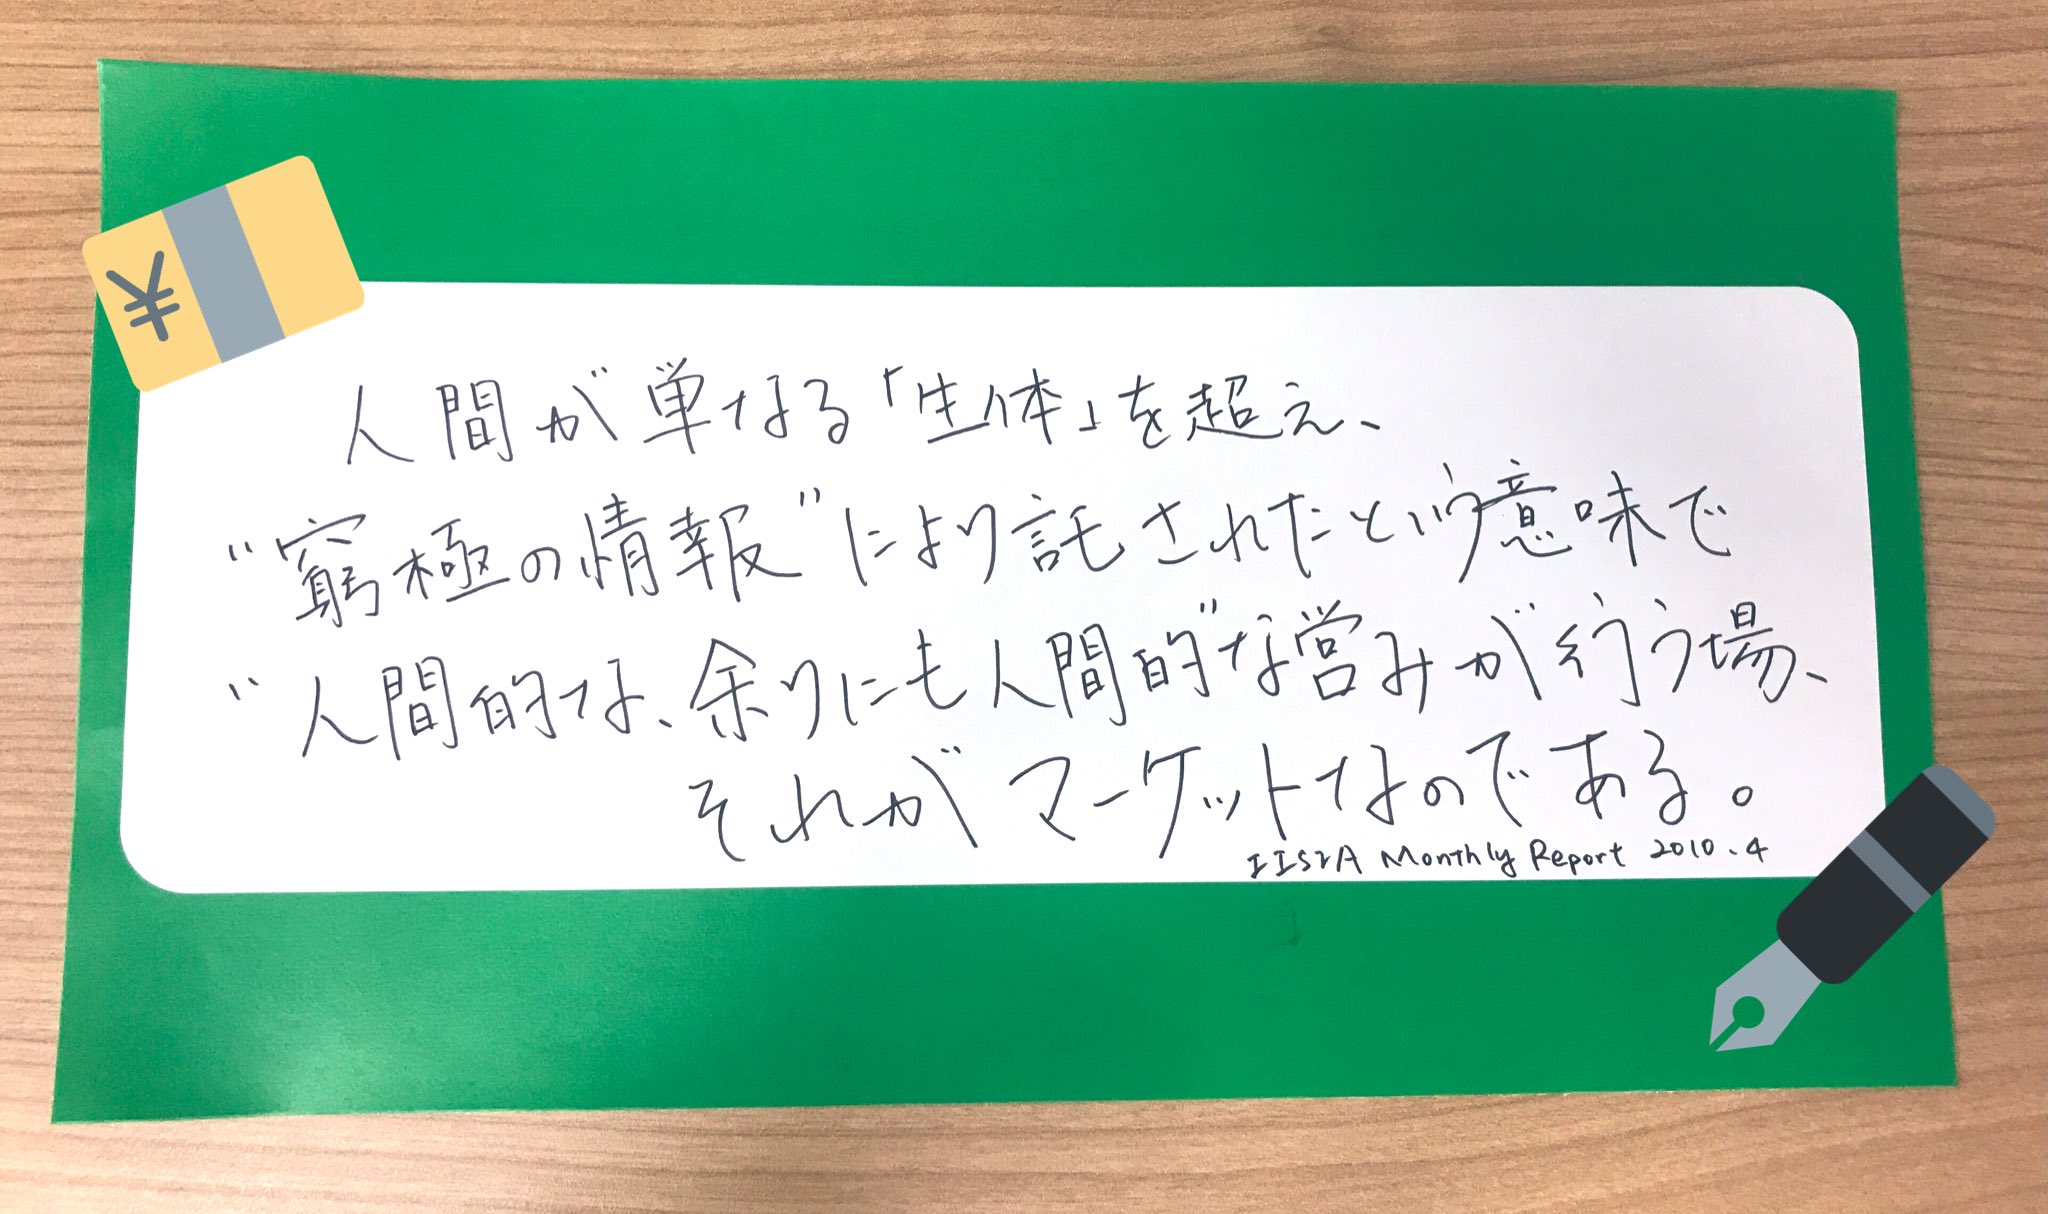 ¥
人間が単なる「生体」を超え、
"窮極の情報"により託されたという意味で
"人間的な、余りにも人間的"な営みが行う場、
それがマーケットなのである。
IISIA Monthly Report 2010.4